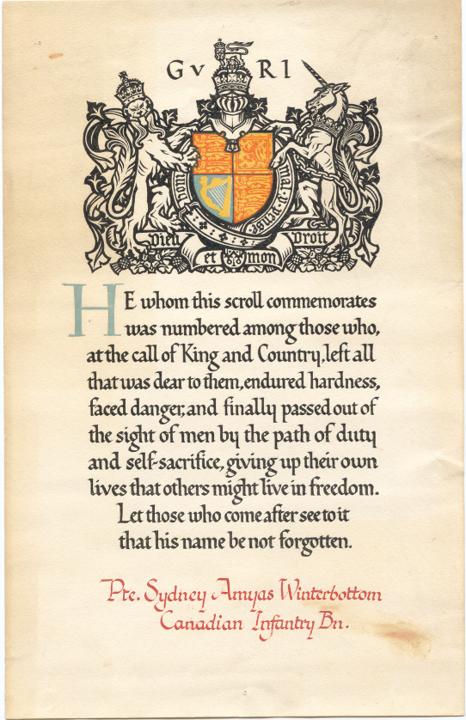 G V R I
Honi mal y pense
Dieu et mon Droit
HE whom this scroll commemorates
was numbered among those who,
at the call of King and Country, left all
that was dear to them, endured hardness,
faced danger, and finally passed out of
the sight of men by the path of duty
and self-sacrifice, giving up their own
lives that others might live in freedom.
Let those who come after see to it
that his name be not forgotten.
Pte. Sydney Amyas Winterbottom
Canadian Infantry Bn.